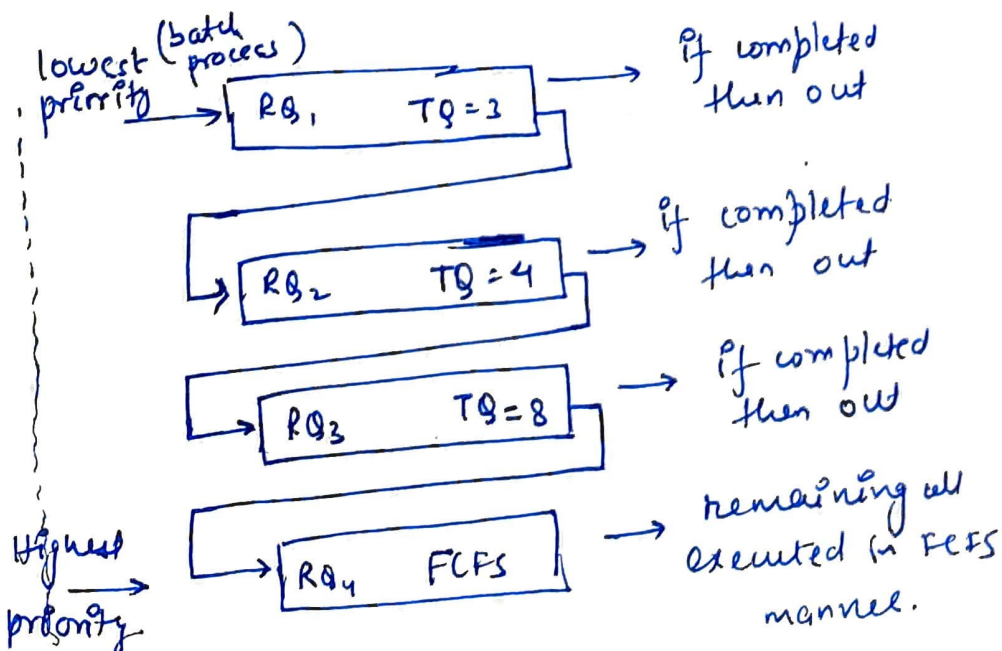 lowest (batch process)
priority
RQ1 TQ=3
if completed
then out
RQ2 TQ=4
if completed
then out
RQ3 TQ=8
if completed
then out
Highest
priority.
RQ4 FCFS
remaining all
executed in FCFS
manner.